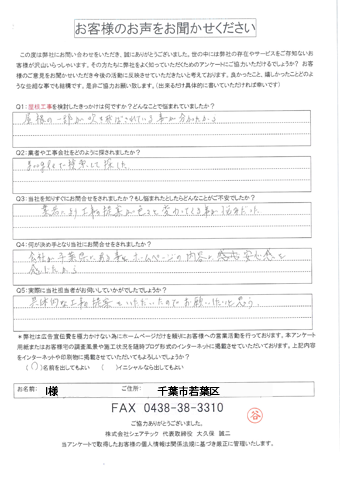 お客様のお声をお聞かせください
この度は弊社にお問い合わせをいただき、誠にありがとうございました。世の中には弊社の存在やサービスをご存知ないお
客様が沢山いらっしゃいます。その方たちに弊社をよく知っていただくためのアンケートにご協力いただけるでしょうか？お
客様のご意見をお聞かせいただき今後の活動に反映させていただきたいと考えております。良かったこと、嬉しかったことどのよ
うな些細な事でも結構です。是非ご協力お願い致します。（出来るだけ具体的に書いていただければ幸いです）
Q1：屋根工事を検討したきっかけは何ですか？どんなことで悩まれていましたか？
屋根の一部が吹き飛ばされている事が分かったから
Q2：業者や工事会社をどのように探されましたか？
まいまいで検索して探した
Q3：当社を知りすぐにお問合せをされましたか？もし悩まれたとしたらどんなことがご不安でしたか？
業者により工事提案が
Q4：何が決め手となり当社にお問合せをされましたか？
会社が千葉県に有る事、ホームページの内容に 安心感を
感じたから
Q5：実際に当社担当者がお伺いしていかがでしたでしょうか？
具体的な工事提案をいただいたのでお願いしたいと思う。
＊弊社は広告宣伝費を極力かけない為にホームページだけを頼りにお客様への営業活動を行っております。本アンケート
用紙またはお客様宅の調査風景や施工状況を随時ブログ形式のインターネットに掲載させていただいております。上記内容
をインターネットや印刷物に掲載させていただいてもよろしいでしょうか？
（〇）名前を出してもよい　（　）イニシャルなら出してもよい
お名前：　I様　ご住所：　千葉市若葉区
FAX 0438-38-3310
ご協力ありがとうございました。
株式会社シェアテック 代表取締役 大久保 誠二
当アンケートで取得したお客様の個人情報は関係法規に基づき厳正に管理いたします。
谷